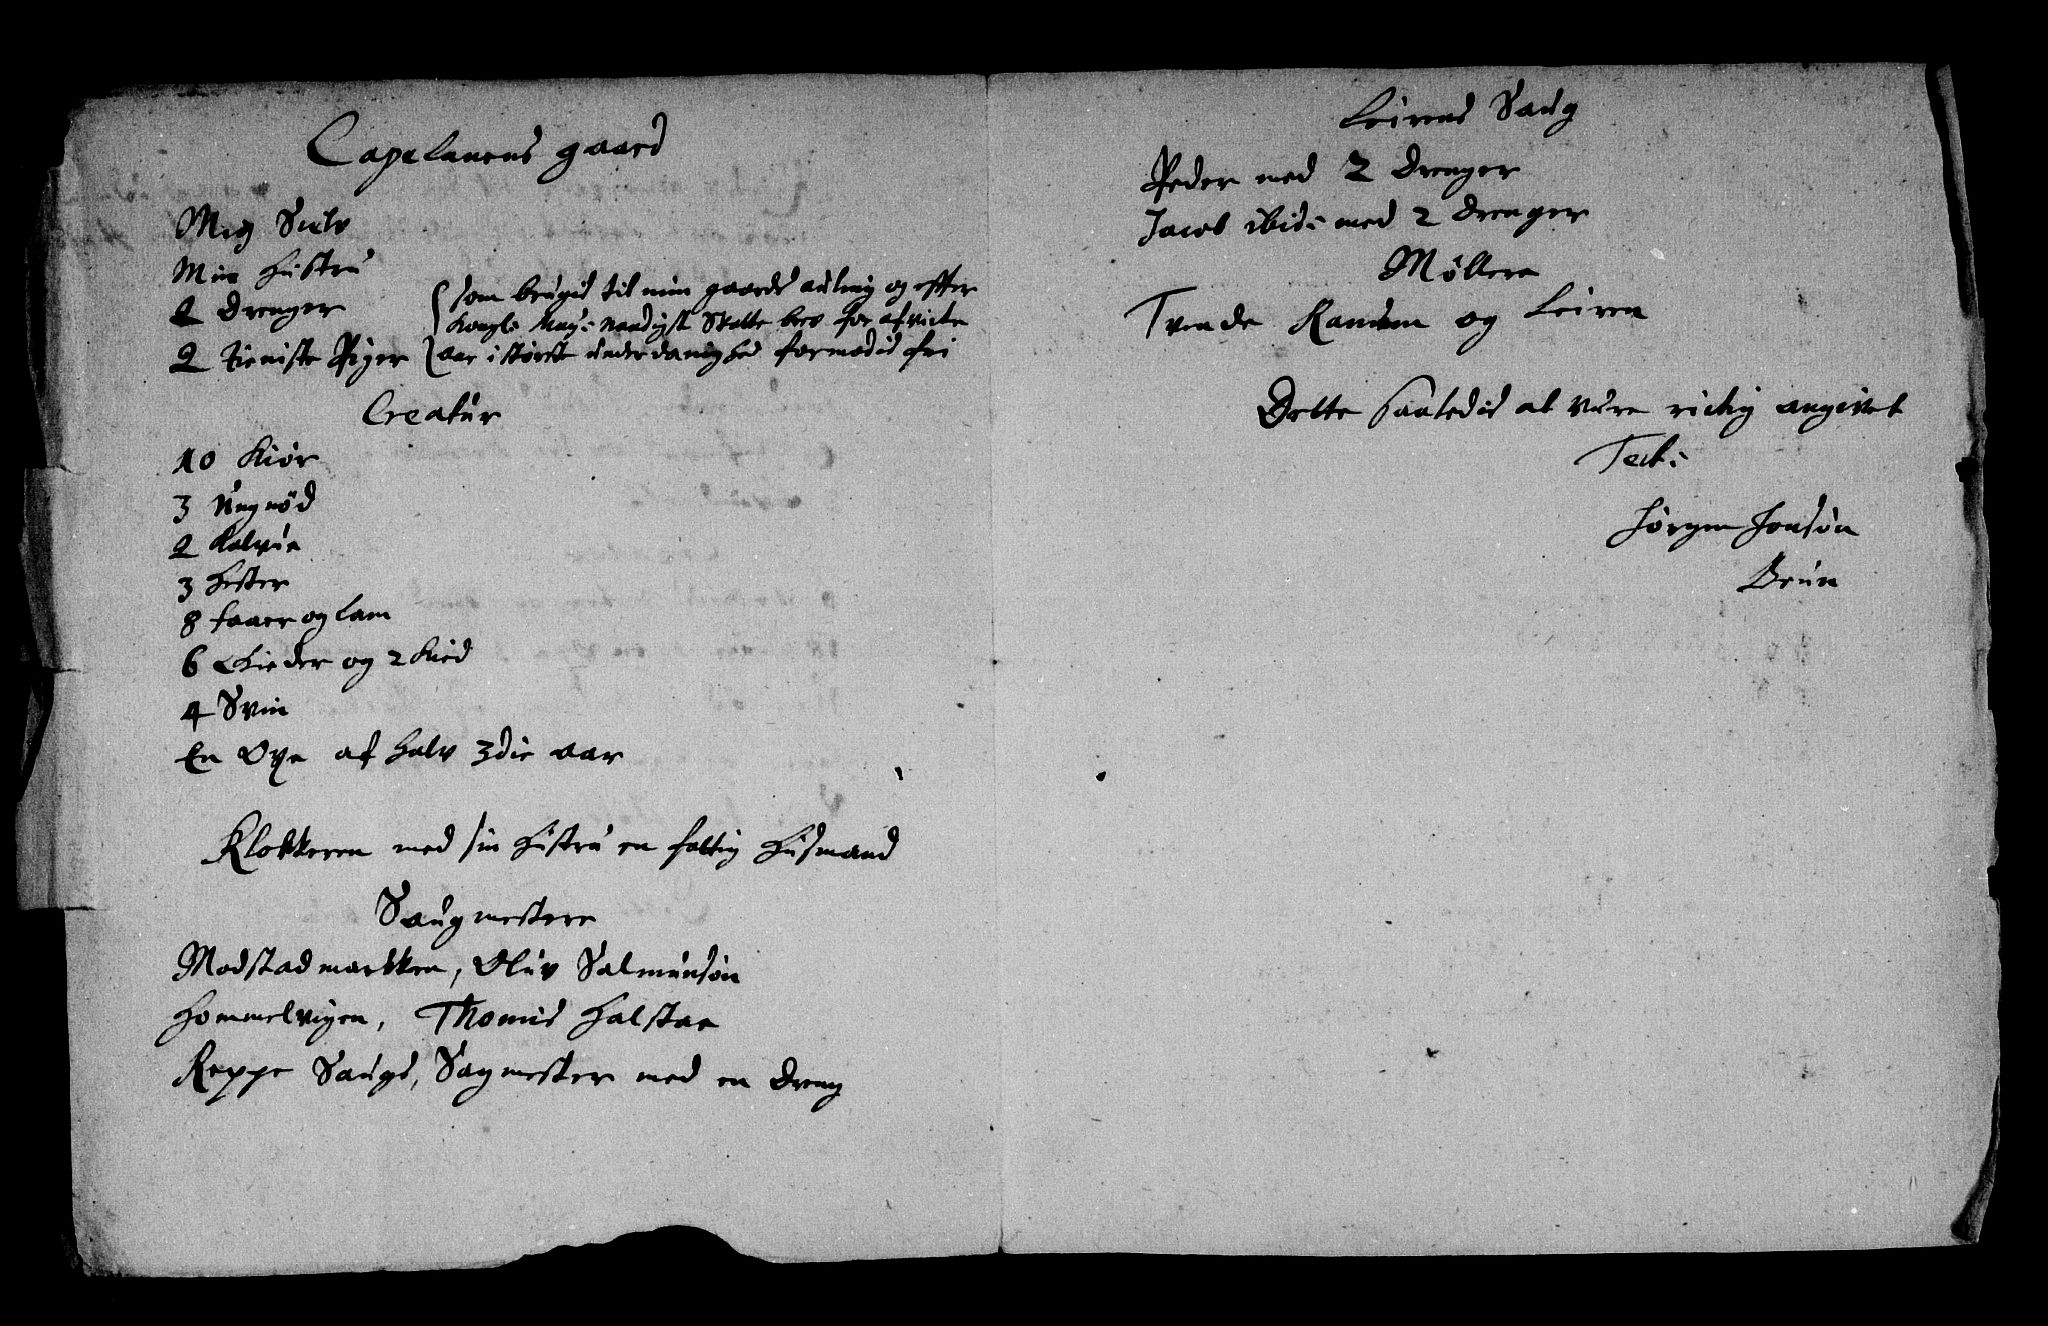 Capelanens gaard
Mig Sielv
Min Hustru
2 Drenger
2 tieniste Piger
{som brugis til min gaards auling og effter
Kongl: May: naadigst Skatte brev for afvicte
aar i størst underdanighed formodis fri
Creatur
10 Kiør
3 Ungnød
2 Kalvie
3 Hester
8 faaer og lam
6 Gieder og 2 Kied
4 Svin
En Oxe af halv 3die aar
Klokkeren med sin Hustru en fattig Husmand
Saugmestere
Modstadmarkken, Oluv Salmunsøn
Hommelvigen, Thomis Halstae
Reppe Saugs, Sagmester med en Dreng
Leirens Saug
Peder med 2 Drenger
Jacob ibid: med 2 Drenger
Møllere
Tvende Ransem og Leiren
Dette saaledis at vere rictig angivet
Test:
Jørgen Jonsøn
Brun